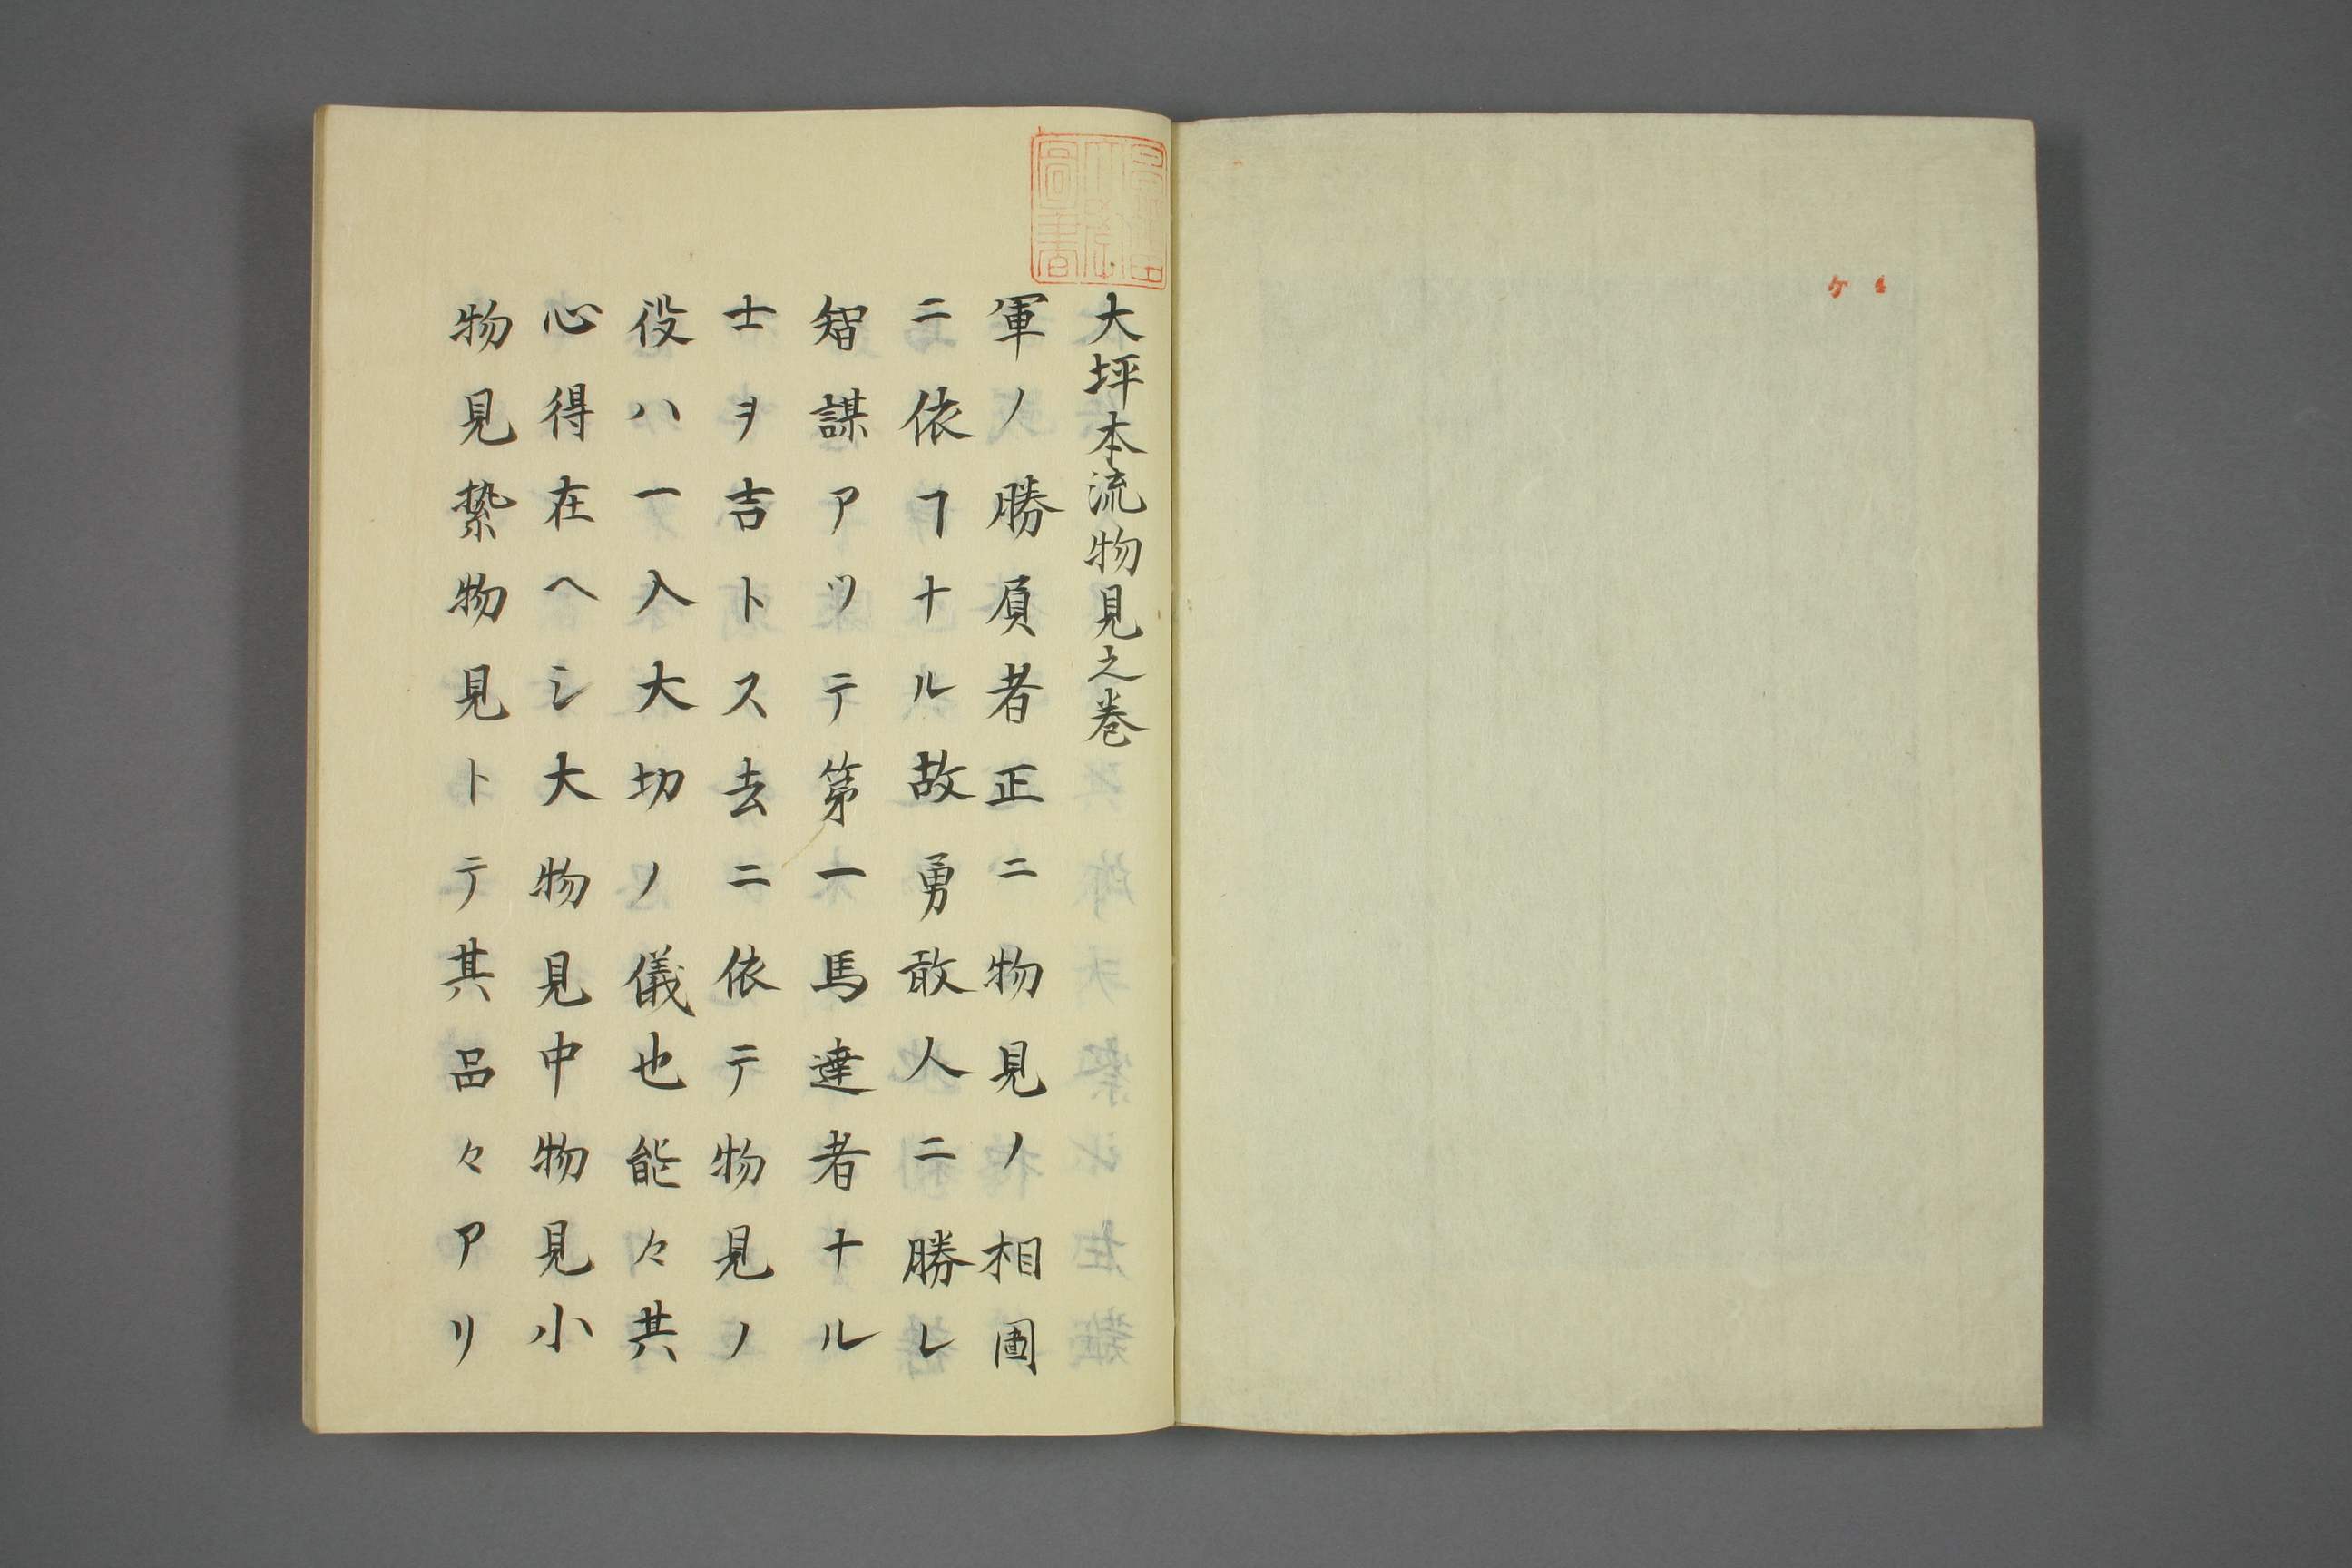 大坪本流物見之巻
軍ノ勝負者正ニ物見ノ相圖
ニ依ヿナル故勇敢人ニ勝レ
智謀アツテ第一馬達者ナル
士ヲ吉トス去ニ依テ物見ノ
役ハ一入大切ノ儀也能々其
心得在ヘシ大物見中物見小
物見縶物見トテ其品々アリ